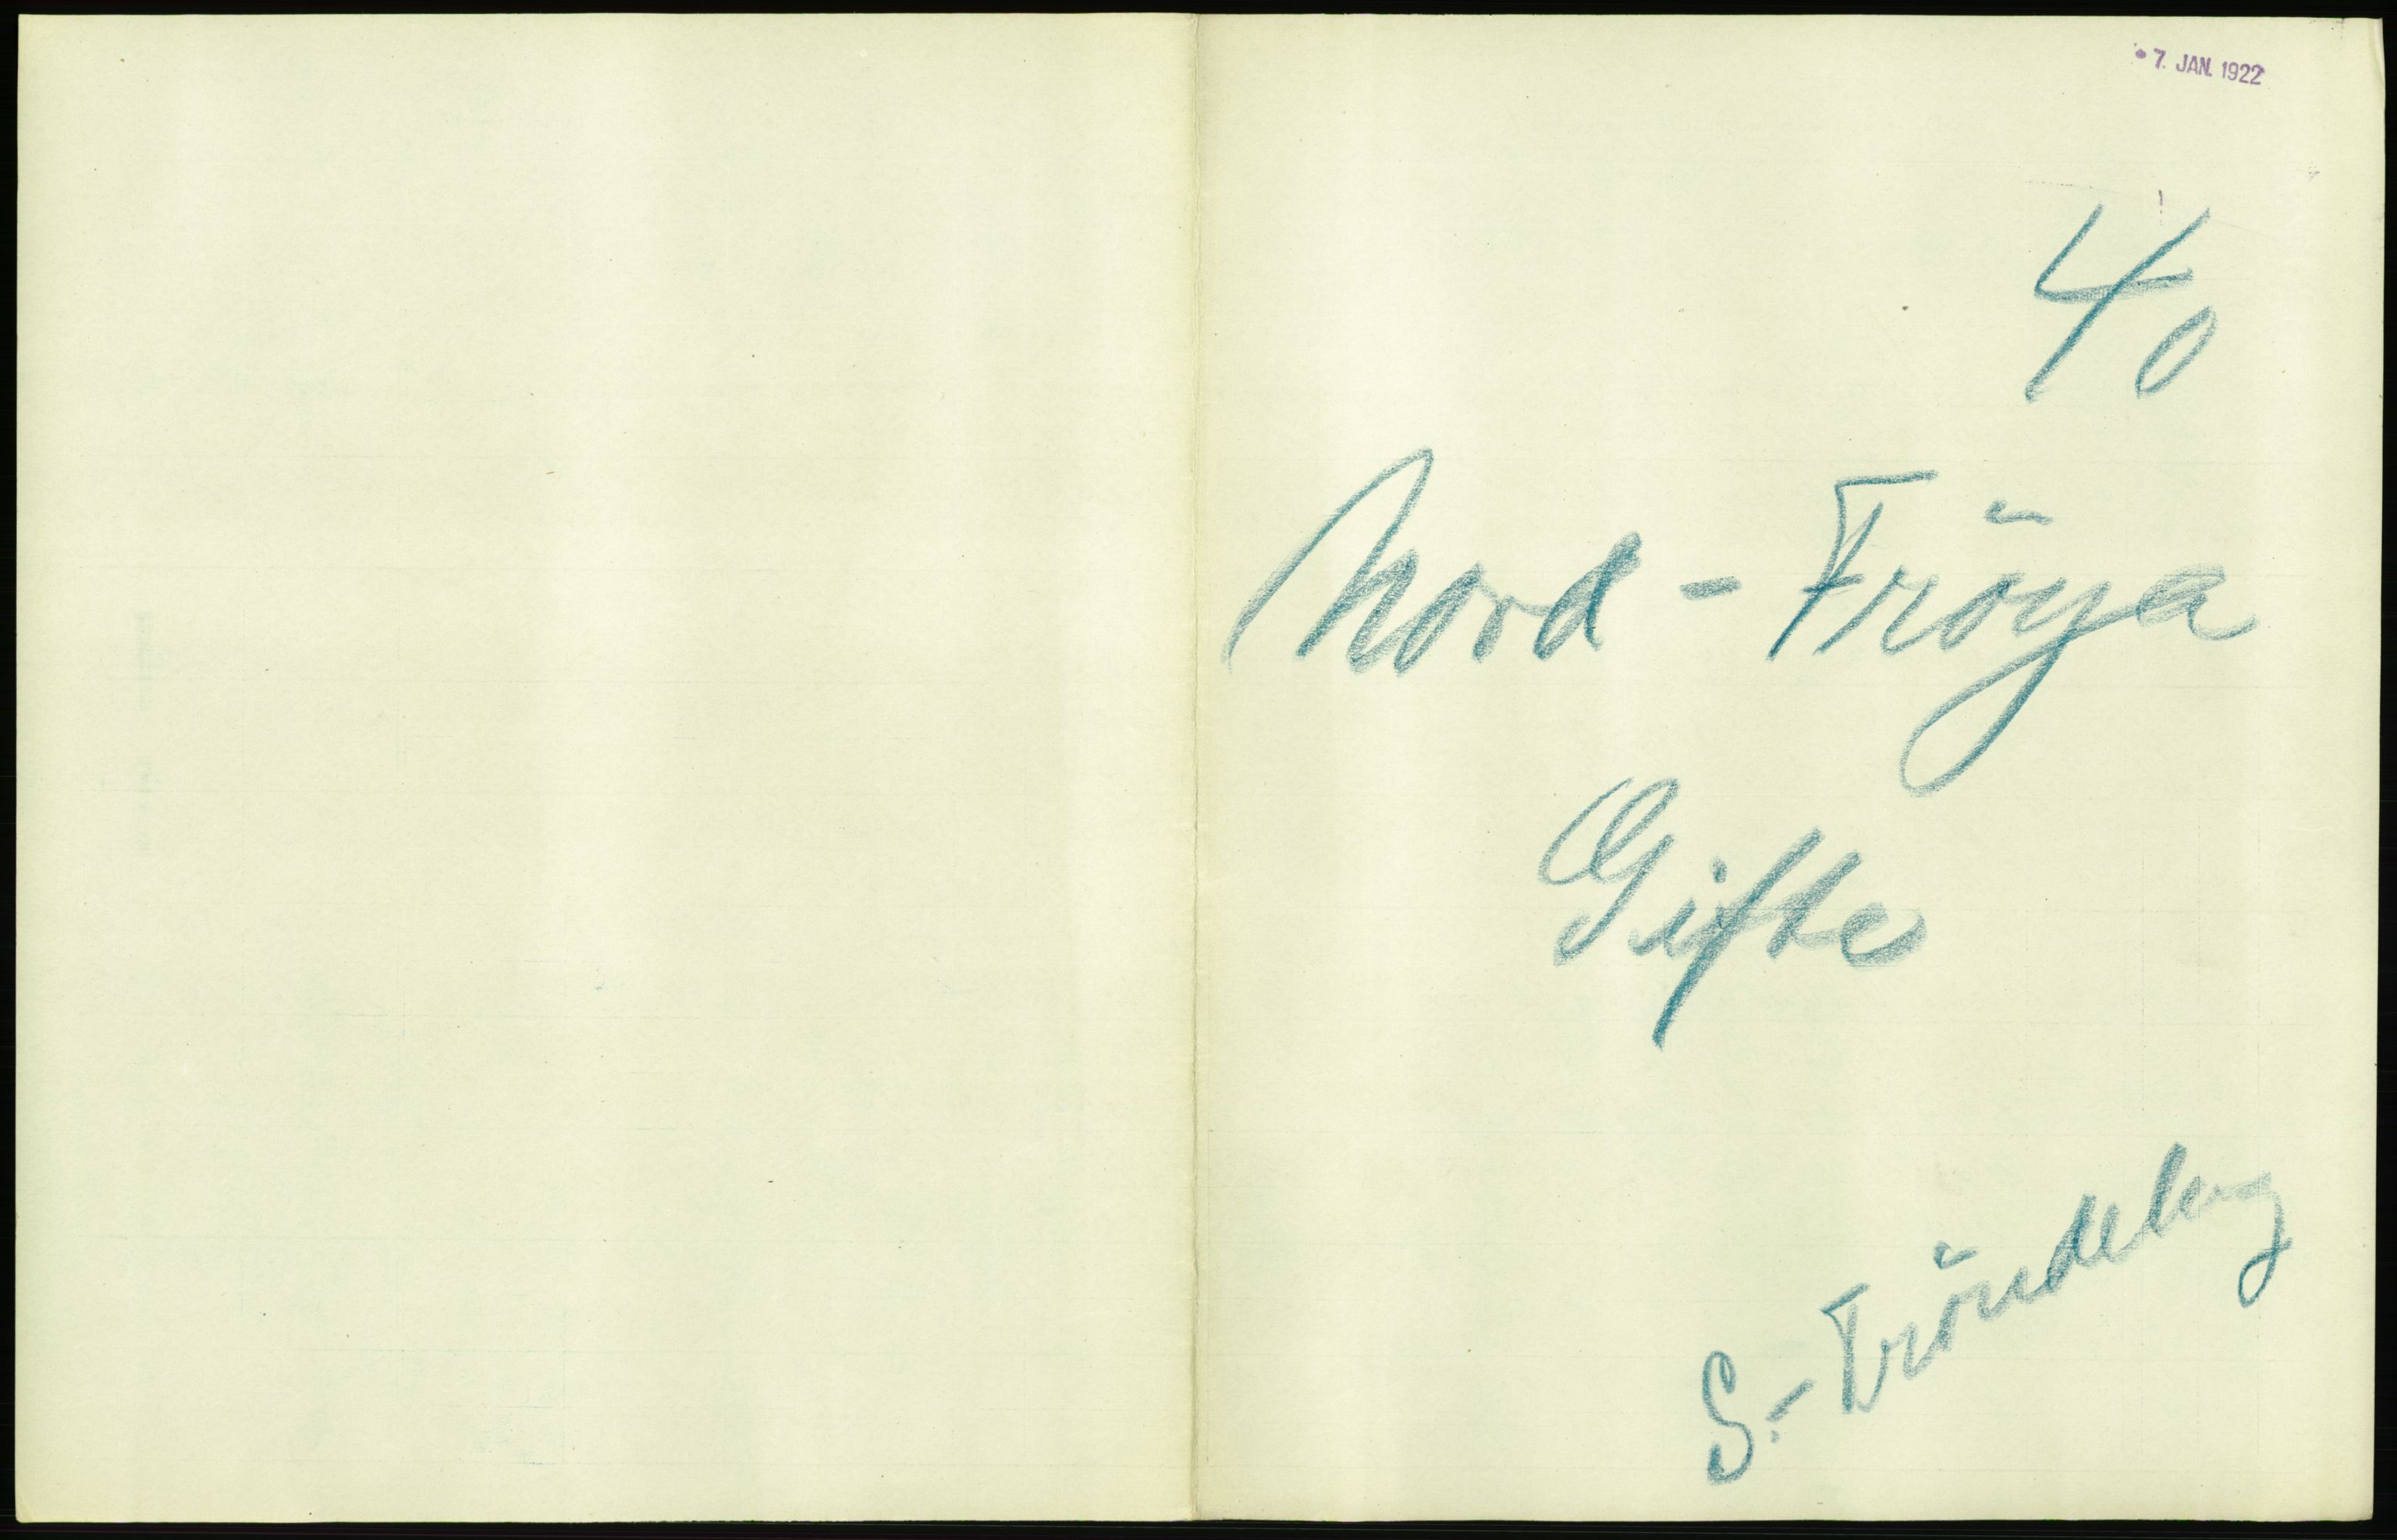 7. JAN. 1922
40
Nord - Fröya
Gifte
S.- Tröndelag